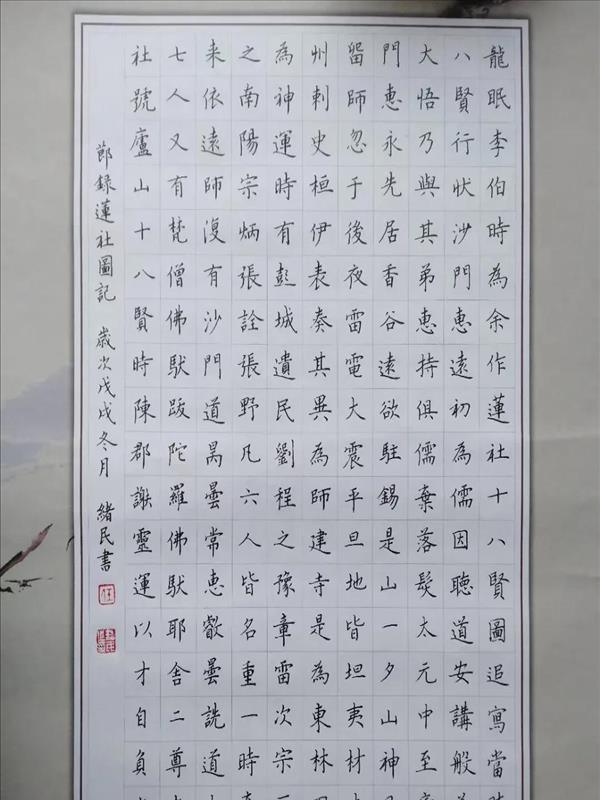 龍眠李伯時為余作蓮社十八賢圖追寫當
八賢行狀沙門惠遠初為儒因聽道安講般
大悟乃與其弟惠持俱儒棄落髮太元中至
門惠永先居香谷遠欲駐錫是山一夕山神
留師忽于後夜雷電大震平旦地皆坦夷材
州刺史桓伊表奏其異為師建寺是為東林
為神運時有彭城遺民劉程之豫章雷次宗
之南陽宗炳張詮張野凡六人皆名重一時
来依遠師復有沙門道昺曇常惠叡曇詵道
七人又有梵僧佛馱跋陀羅佛馱耶舍二尊
社號廬山十八賢時陳郡謝靈運以才自負
節録蓮社圖記 歲次戊戌冬月 緒民書